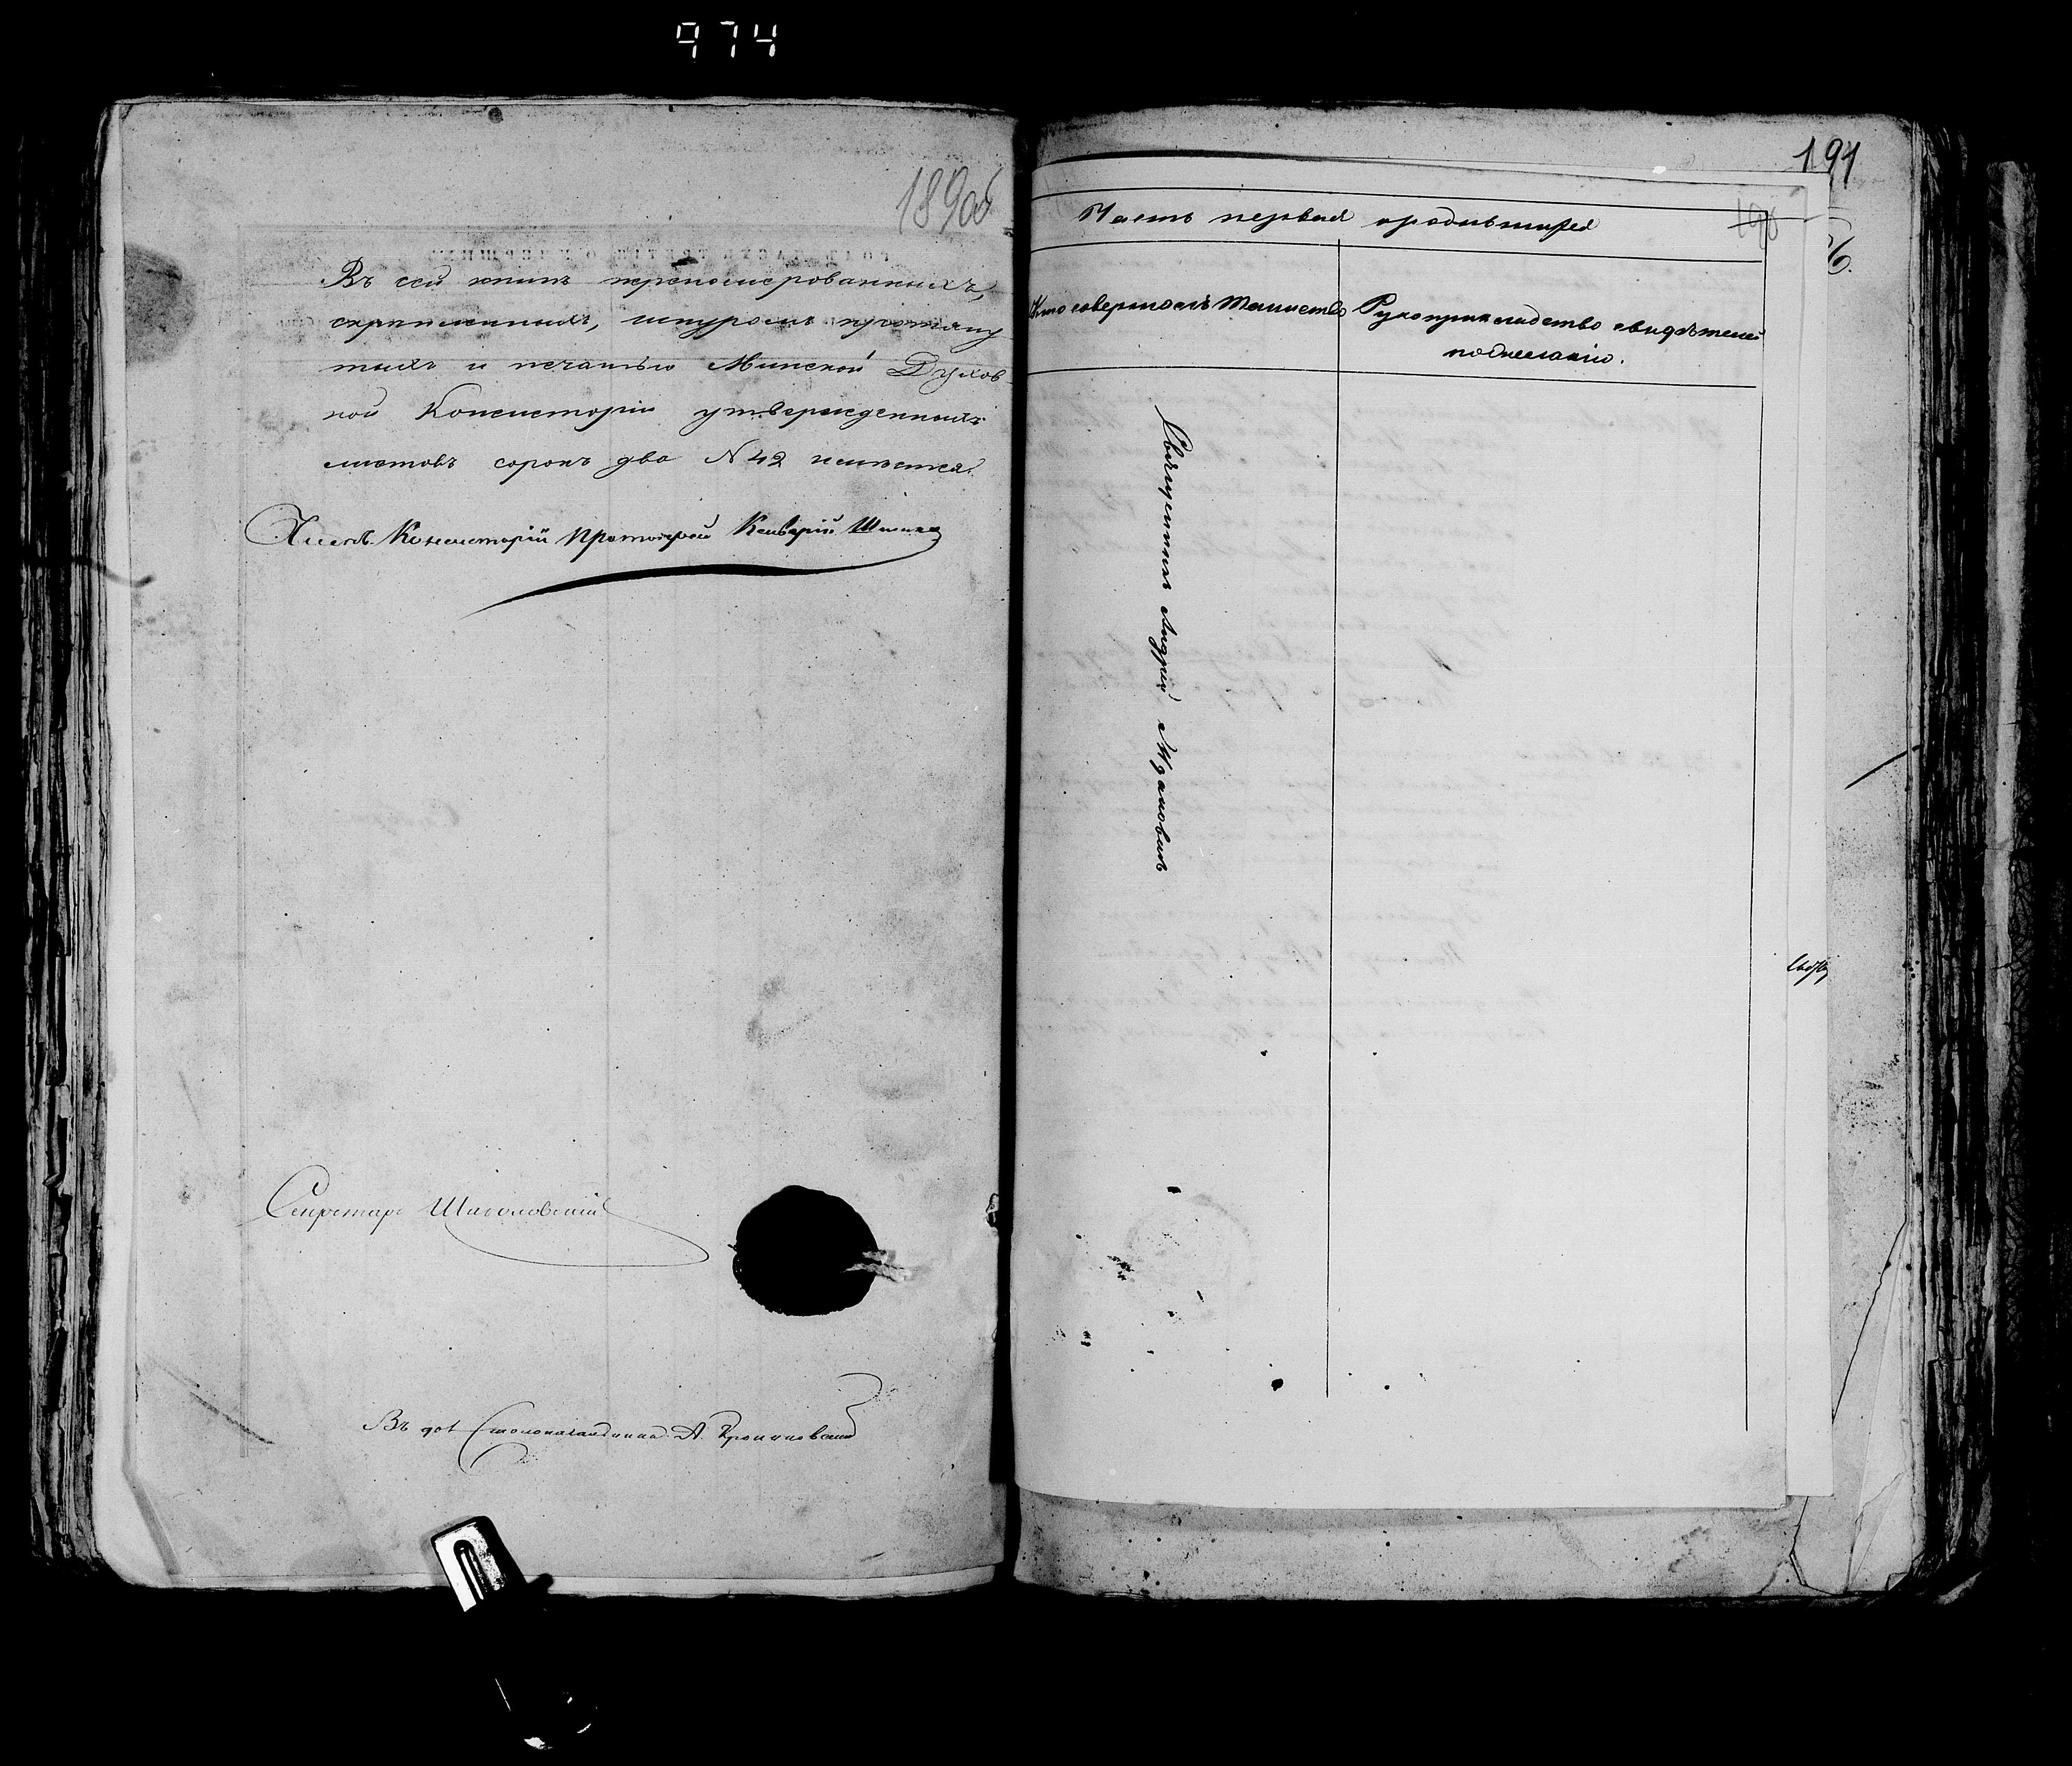 974
189об
Въ сей книгѣ перенумерованныхъ,
скрѣпленныхъ, шнуромъ протяну
тыхъ и печатью Минской Духов
ной Консисторіи утвержденныхъ
листовъ сорокъ два N 42 имѣется.
Членъ Консисторіи Протоіерей
Секретарь
Въ дол Столоначальника А.
191
Часть первая о родившихся
190
Кто совершалъ таинство
Рукоприкладство свидѣтелей
по желанію.
Священникъ Андрей